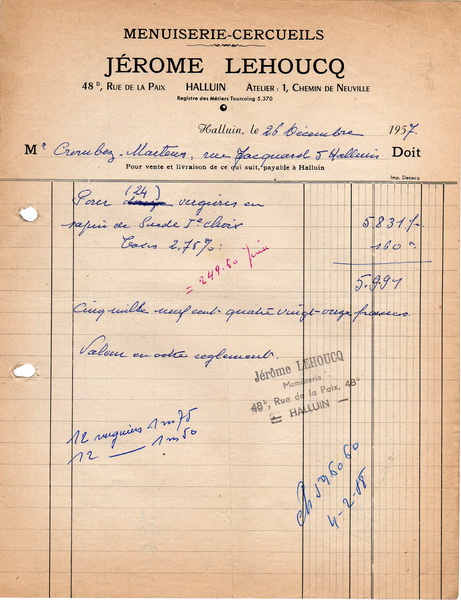 MENUISERIE-CERCUEILS
JÉROME LEHOUCQ
48ᵇ, RUE DE LA PAIX HALLUIN ATELIER : 1, CHEMIN DE NEUVILLE
Registre des Métiers Tourcoing 5.370
Halluin, le 26 Décembre 1957
Mr Crombez-Martens, rue Jacquard 5 Halluin Doit
Pour vente et livraison de ce qui suit, payable à Halluin
Imp. Decocq
(24) vergières en
sapin de Suède 1e choix 5831
Taxes 2.75% 160
= 249.60 pièce
5.991
Cinq mille neuf cent quatre vingt-onze francs
Valeur en votre règlement.
Jérôme LEHOUCQ
Menuiserie
48ᵇ, Rue de la Paix, 48ᵇ
HALLUIN
12 1m75
12 — 1m50
4-2-58